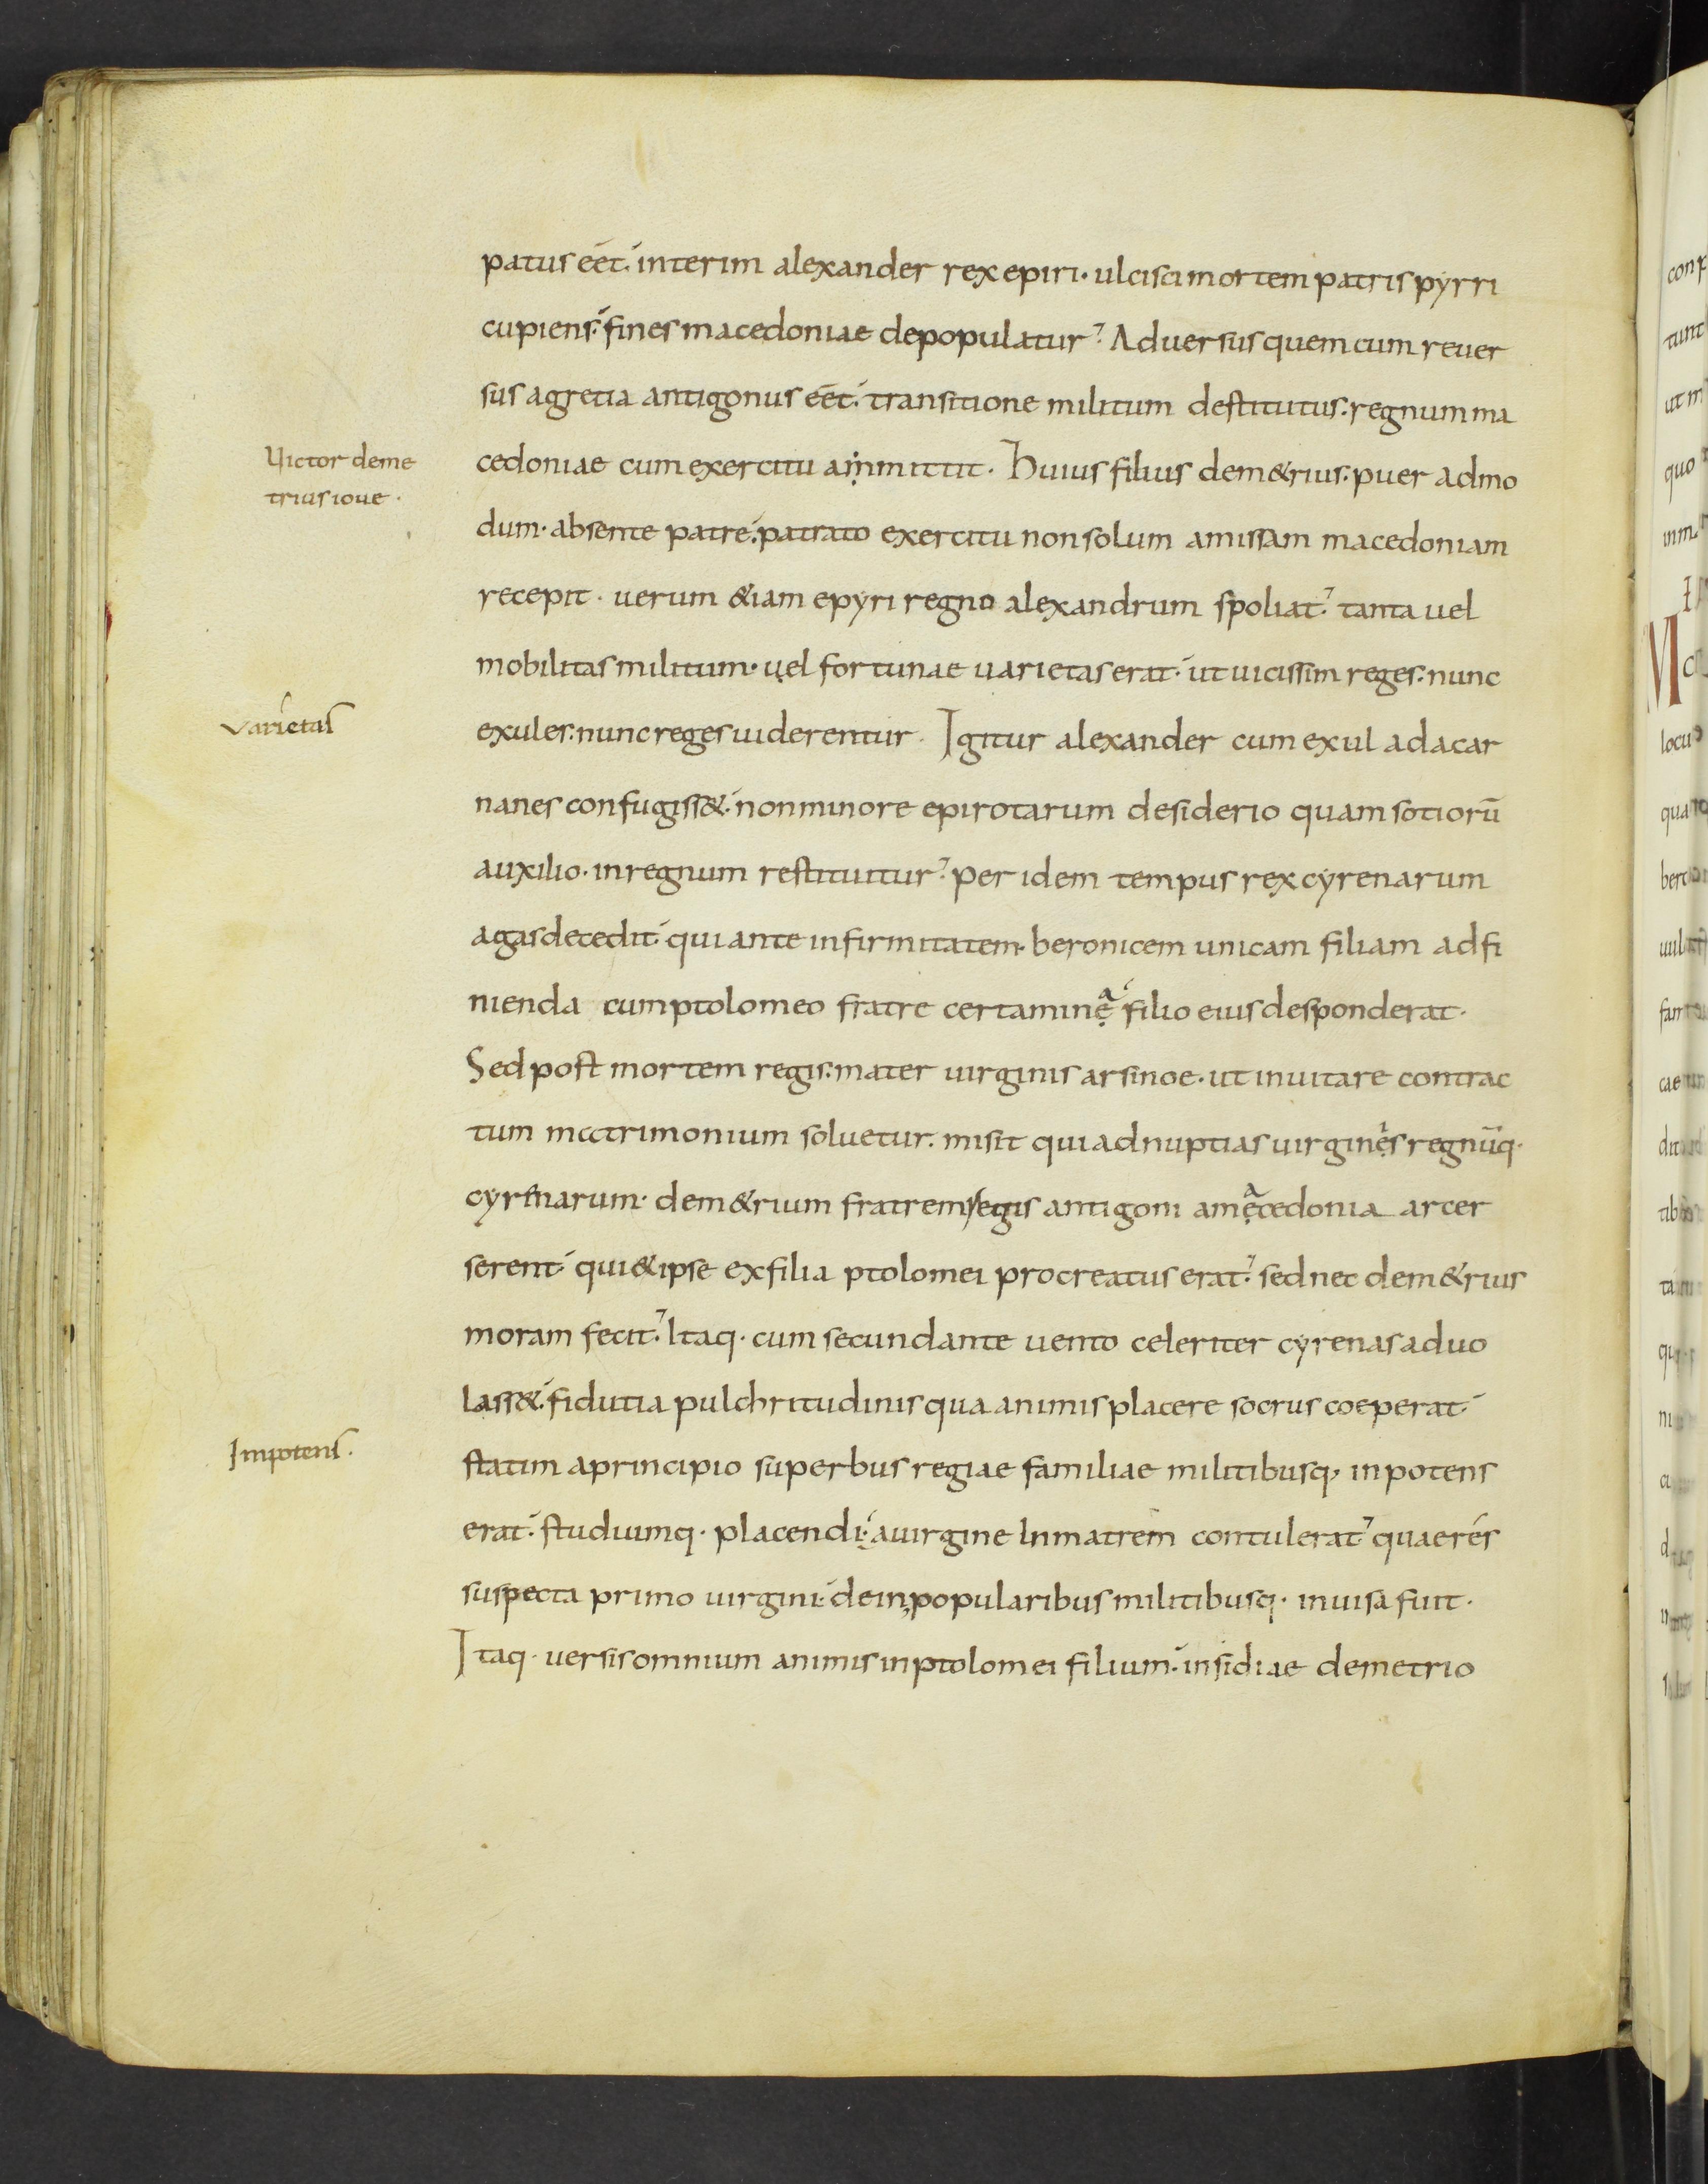 patus eēt. interim alexander rex epiri· ulcisci mortem patris pyrri
cupiens. fines macedoniae depopulatur. Aduersus quem cum reuer
sus a gretia antigonus eēt. transitione militum destitutus. regnum ma
Uictor deme
cedoniae cum exercitu ammittit. Huius filius dem&rius. puer admo
trius ioue.
dum· absente patre. patrato exercitu non solum amissam macedoniam
recepit· uerum &iam epyri regno alexandrum spoliat. tanta uel
mobilitas militum· uel fortunae uarietas erat. ut uicissim reges. nunc
varietas
exules. nunc reges uiderentur. Igitur alexander cum exul ad acar
nanes confugiss&. non minore epirotarum desiderio quam sotiorū
auxilio· in regnum restituitur. per idem tempus rex cyrenarum
agas decedit. qui ante infirmitatem· beronicem unicam filiam ad fi
nienda cum ptolomeo fratre certamina filio eius desponderat.
Sed post mortem regis. mater uirginis arsinoe· ut inuitare contrac
tum mctrimonium soluetur. misit qui ad nuptias uirginis regnūq·
cyrenarum· dem&rium fratrem regis antigoni a macedonia arcer
serent. qui & ipse ex filia ptolomei procreatus erat. sed nec dem&rius
moram fecit. Itaq· cum secundante uento celeriter cyrenas aduo
lass&. fidutia pulchritudinis qua animis placere socrus coeperat.
Impotens.
statim a principio superbus regiae familiae militibusq· inpotens
erat. studiumq· placendi. a uirgine in matrem contulerat. quae res
suspecta primo uirgini. dein popularibus militibusq· inuisa fuit.
Itaq· uersis omnium animis in ptolomei filium· insidiae demetrio